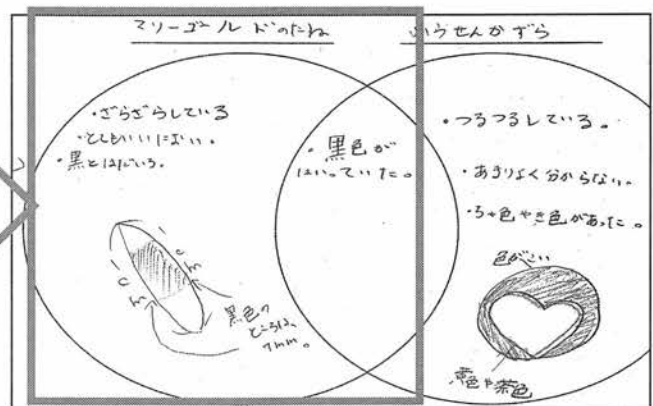 マリーゴールドのたね
ふうせんかずら
・ざらざらしている
・とてもいいにおい。
・黒とはだいろ。
1cm
黒色の
ところは、
7mm。
・黒色が
はいっていた。
・つるつるしている。
・あまりよく分からない。
・ちゃ色やき色があった。
色がこい
黄色や茶色